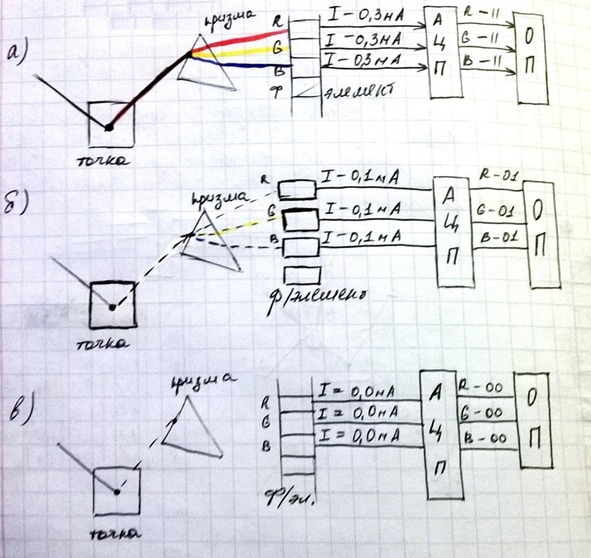 а)
призма
R
G
B
Ф элемент
I - 0,3мА
I - 0,3мА
I - 0,3мА
А
Ц
П
R - 11
G - 11
B - 11
О
П
точка
б)
призма
R
G
B
Ф/элемент
I - 0,1мА
I - 0,1мА
I - 0,1мА
А
Ц
П
R - 01
G - 01
B - 01
О
П
точка
в)
призма
R
G
B
Ф/эл.
I = 0,0мА
I = 0,0мА
I = 0,0мА
А
Ц
П
R - 00
G - 00
B - 00
О
П
точка